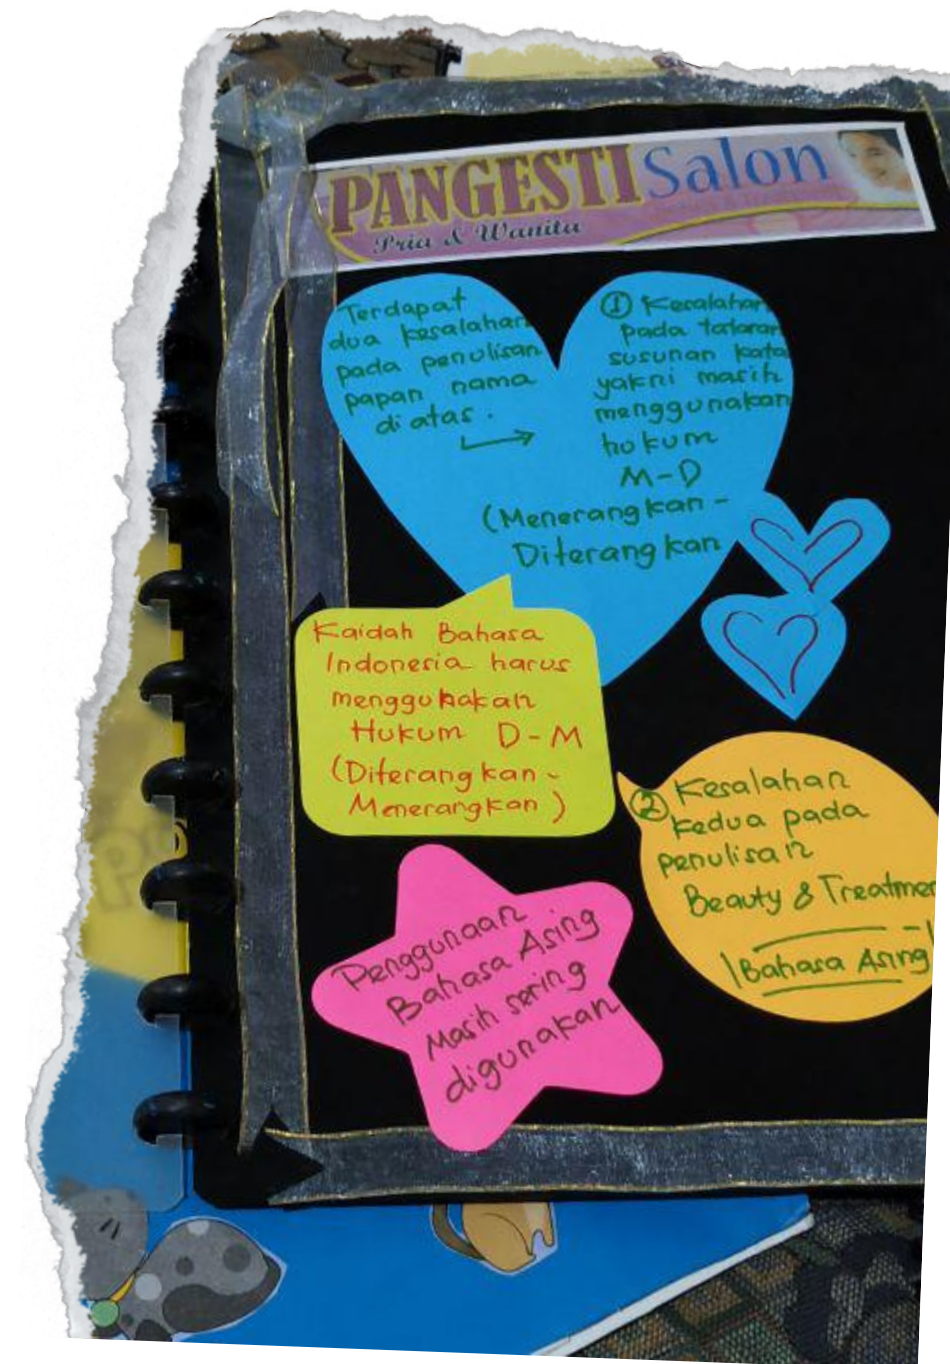 PANGESTI Salon
Pria & Wanita
Terdapat
dua kesalahan
pada penulisan
papan nama
diatas.
① Kesalahan
pada tataran
susunan kata
yakni masih
menggunakan
hukum
M-D
(Menerangkan -
Diterangkan
Kaidah Bahasa
Indonesia harus
menggunakan
Hukum D-M
(Diterangkan -
Menerangkan)
② Kesalahan
kedua pada
penulisan
Beauty & Treatmen
Bahasa Asing
Penggunaan
Bahasa Asing
Masih sering
digunakan